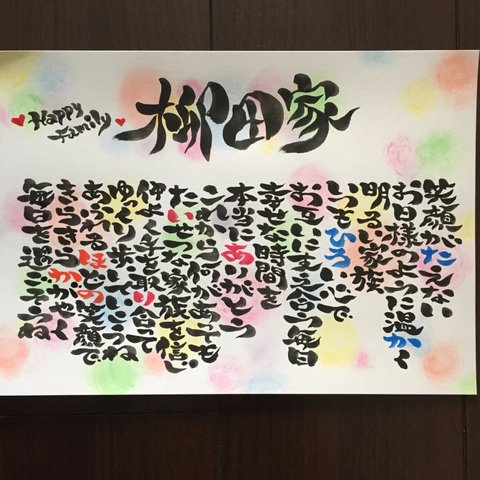 Happy
Family
柳田家
笑顔がたえない
お日様のように温かく
明るい家族
いつもひろい心で
お互いに支え合う毎日
幸せな時間を
本当にありがとう
これから何があっても
たいせつな家族を信じ
仲よく手を取り合て
ゆっくり歩いてこうね
あふれるほどの笑顔で
きらきらかがやく
毎日を過ごそうね